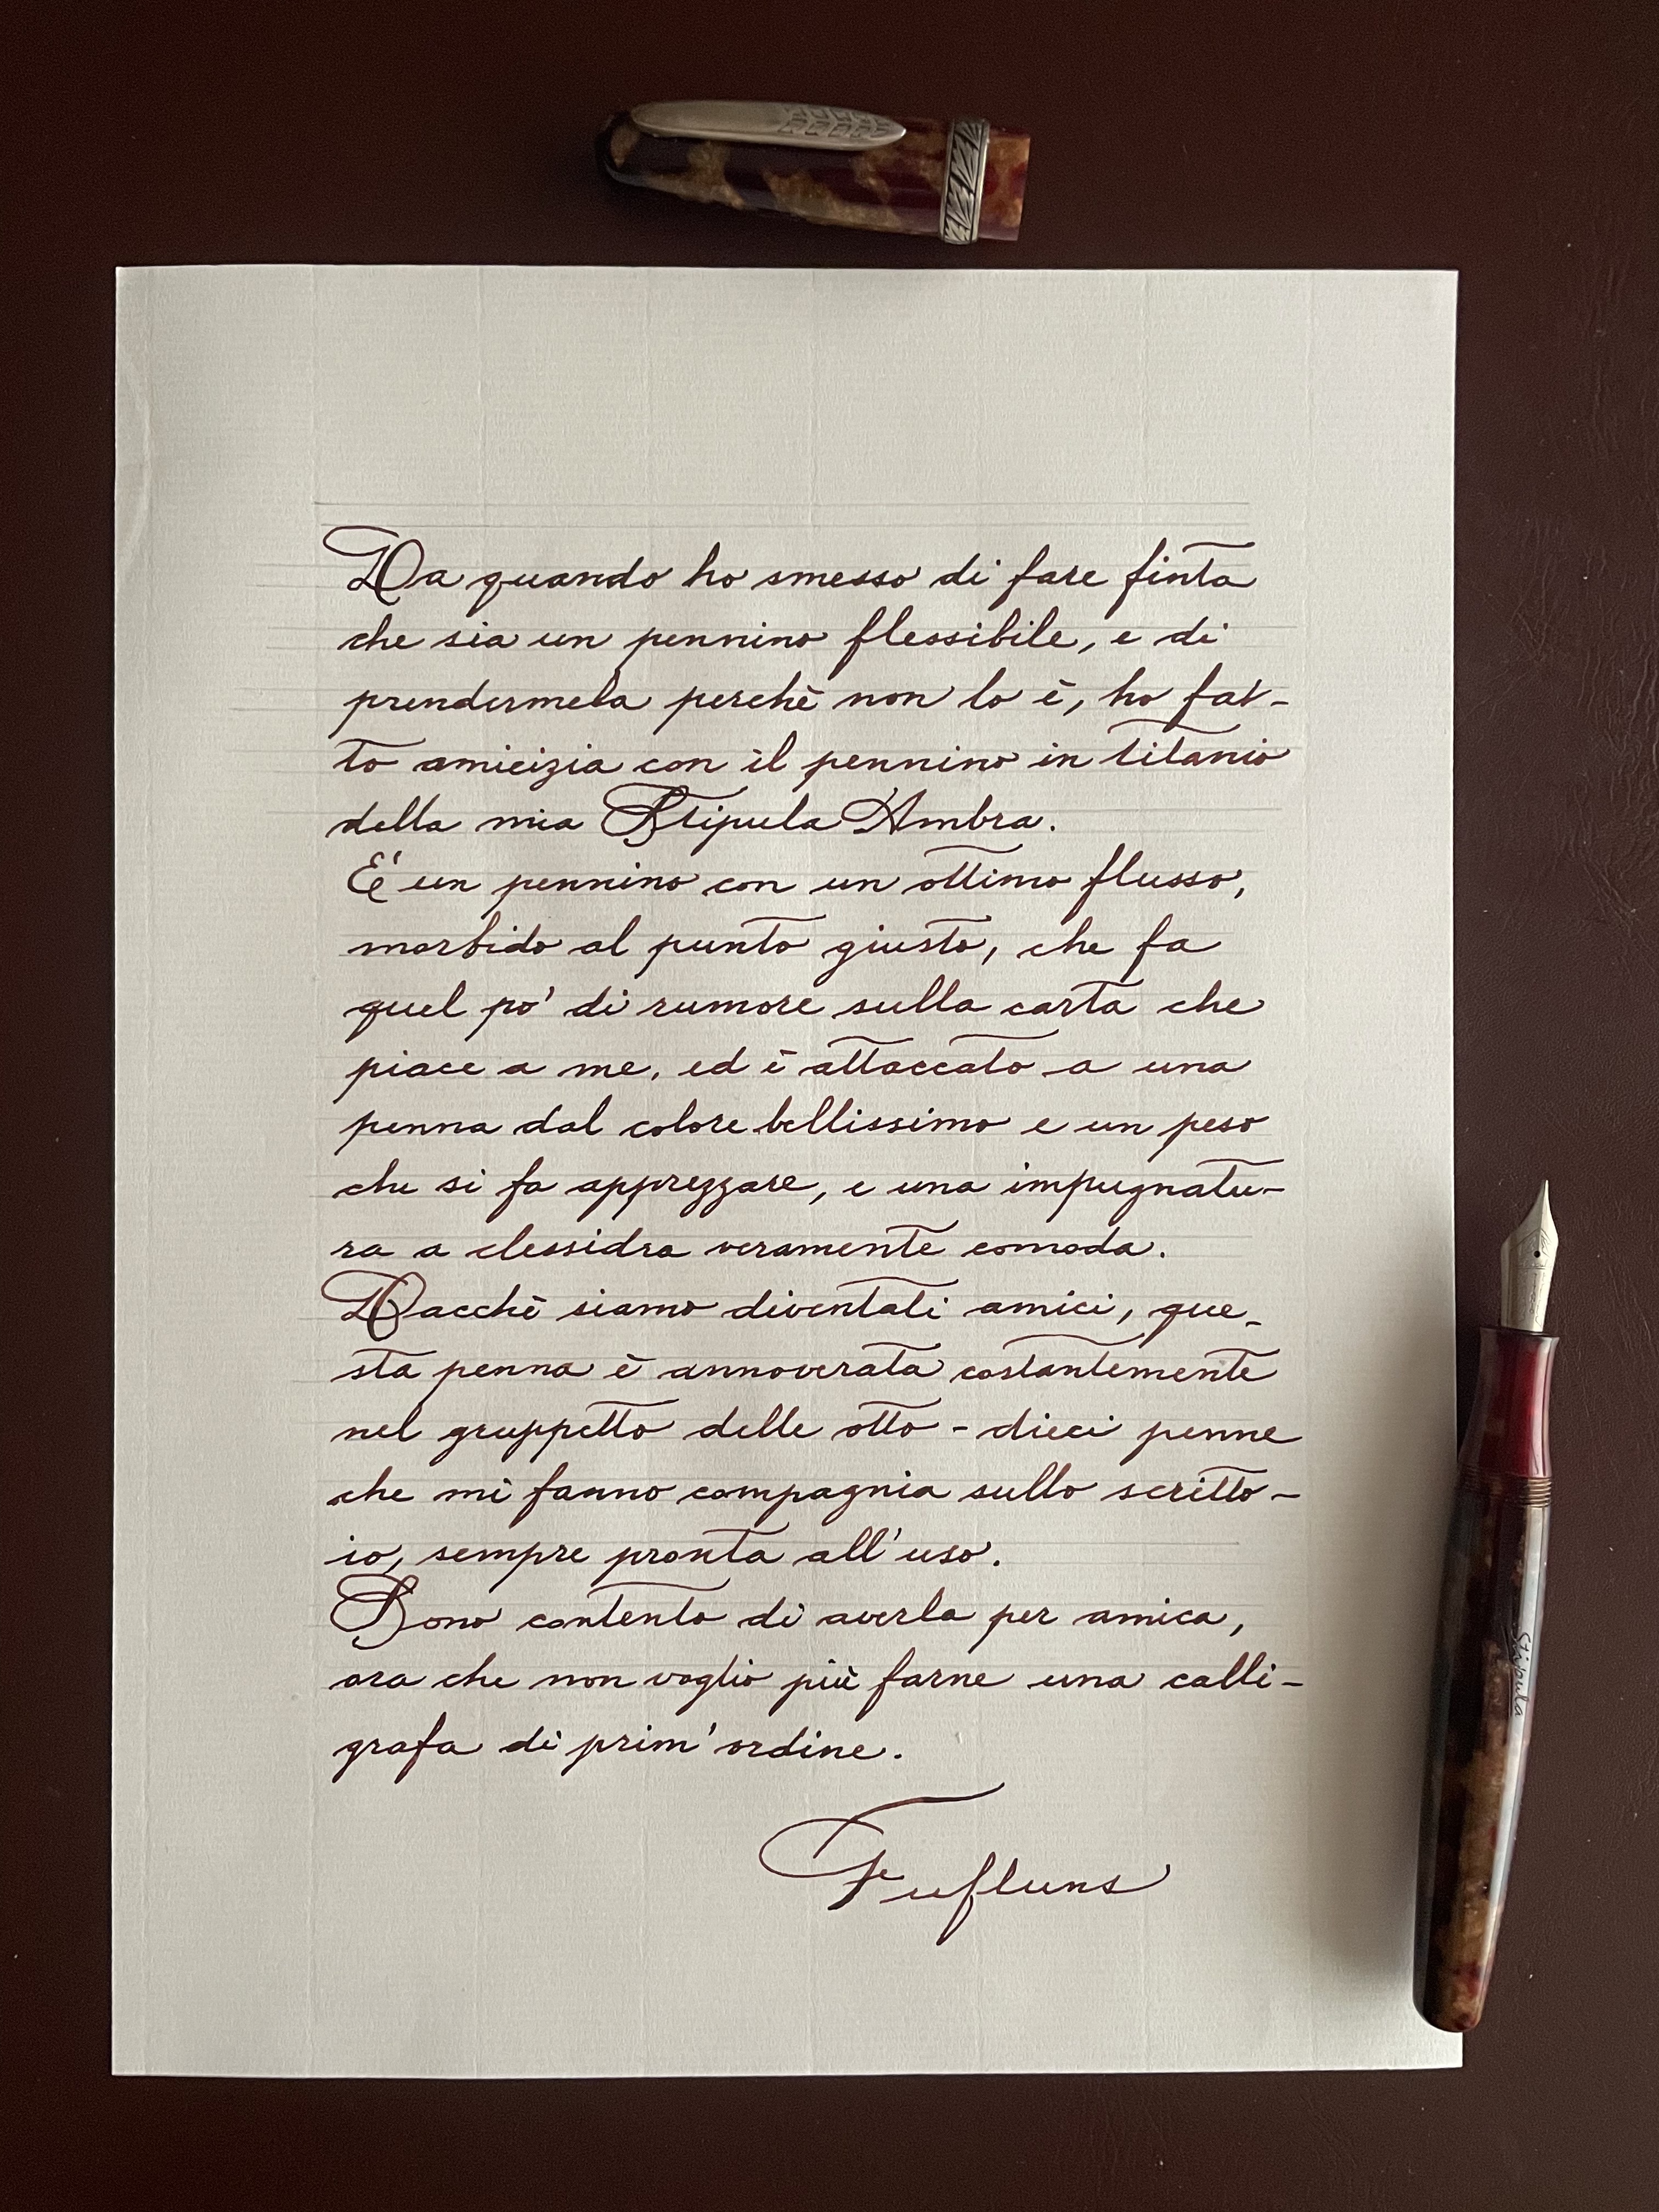 Da quando ho smesso di fare finta
che sia un pennino flessibile, e di
prendermela perchè non lo è, ho fat-
to amicizia con il pennino in titanio
della mia Stipula Ambra.
E' un pennino con un ottimo flusso,
morbido al punto giusto, che fa
quel po' di rumore sulla carta che
piace a me, ed è attaccato a una
penna dal colore bellissimo e un peso
che si fa apprezzare, e una impugnatu-
ra a clessidra veramente comoda.
Dacchè siamo diventati amici, que-
sta penna è annoverata costantemente
nel gruppetto delle otto - dieci penne
che mi fanno compagnia sullo scritto-
io, sempre pronta all'uso.
Sono contento di averla per amica,
ora che non voglio più farne una calli-
grafa di prim'ordine.
Fufluns
Stipula